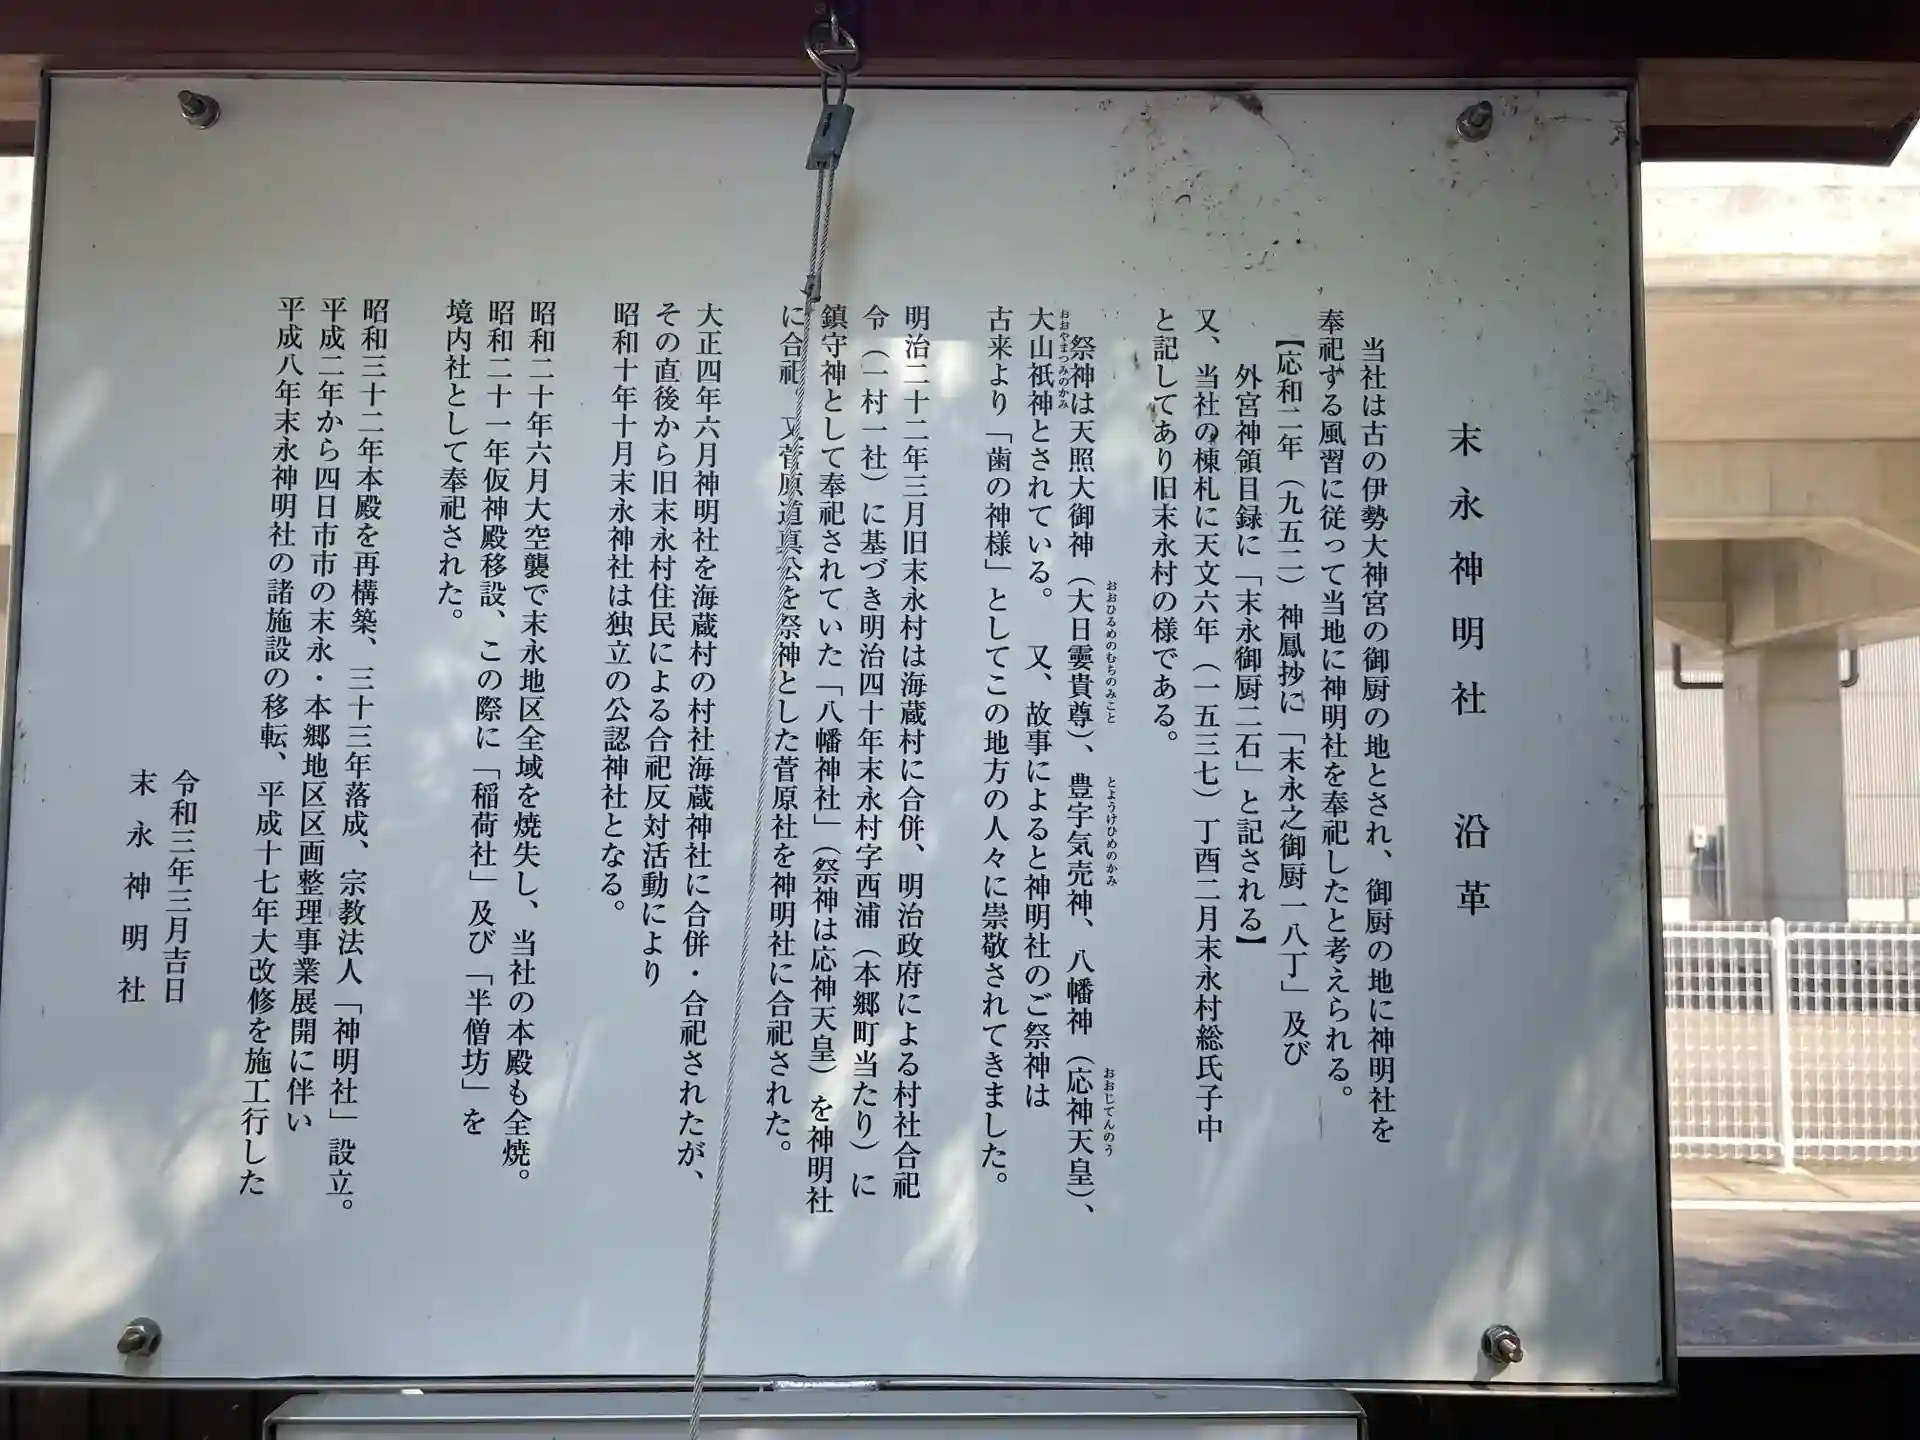 末永神明社　沿革
当社は古の伊勢大神宮の御厨の地とされ、御厨の地に神明社を
奉祀する風習に従って当地に神明社を奉祀したと考えられる。
【応和二年（九五二）神鳳抄に「末永之御厨一八丁」及び
外宮神領目録に「末永御厨二石」と記される】
又、当社の棟札に天文六年（一五三七）丁酉二月末永村総氏子中
と記してあり旧末永村の様である。
祭神は天照大御神（大日孁貴尊）、豊宇気売神、八幡神（応神天皇）、
おおひるめのむちのみこと
とようけひめのかみ
おおじてんのう
大山祇神とされている。　又、故事によると神明社のご祭神は
おおやまつみのかみ
古来より「歯の神様」としてこの地方の人々に崇敬されてきました。
明治二十二年三月旧末永村は海蔵村に合併、明治政府による村社合祀
令（一村一社）に基づき明治四十年末永村字西浦（本郷町当たり）に
鎮守神として奉祀されていた「八幡神社」（祭神は応神天皇）を神明社
に合祀。又菅原道真公を祭神とした菅原社を神明社に合祀された。
大正四年六月神明社を海蔵村の村社海蔵神社に合併・合祀されたが、
その直後から旧末永村住民による合祀反対活動により
昭和十年十月末永神社は独立の公認神社となる。
昭和二十年六月大空襲で末永地区全域を焼失し、当社の本殿も全焼。
昭和二十一年仮神殿移設、この際に「稲荷社」及び「半僧坊」を
境内社として奉祀された。
昭和三十二年本殿を再構築、三十三年落成、宗教法人「神明社」設立。
平成二年から四日市市の末永・本郷地区区画整理事業展開に伴い
平成八年末永神明社の諸施設の移転、平成十七年大改修を施工行した
令和三年三月吉日
末永神明社